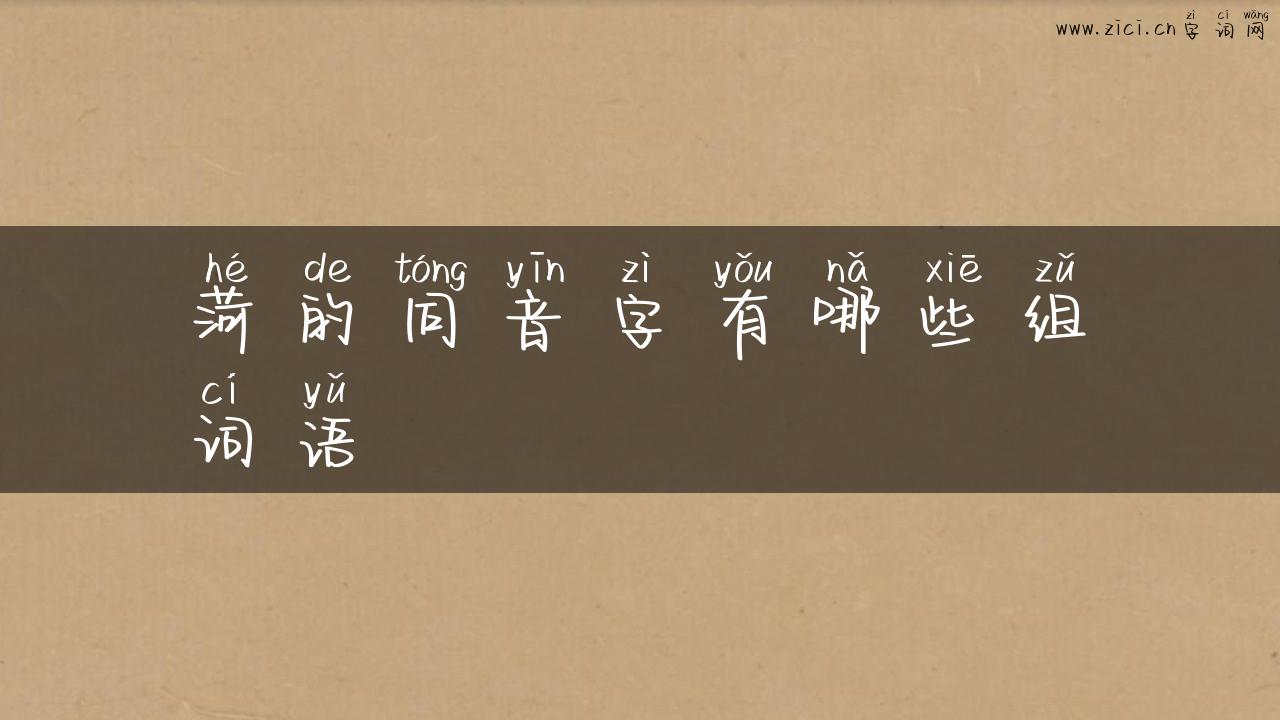 zì cí wǎng
www.zici.cn 字 词 网
hé de tóng yīn zì yǒu nǎ xiē zǔ
菏 的 同 音 字 有 哪 些 组
cí yǔ
词 语